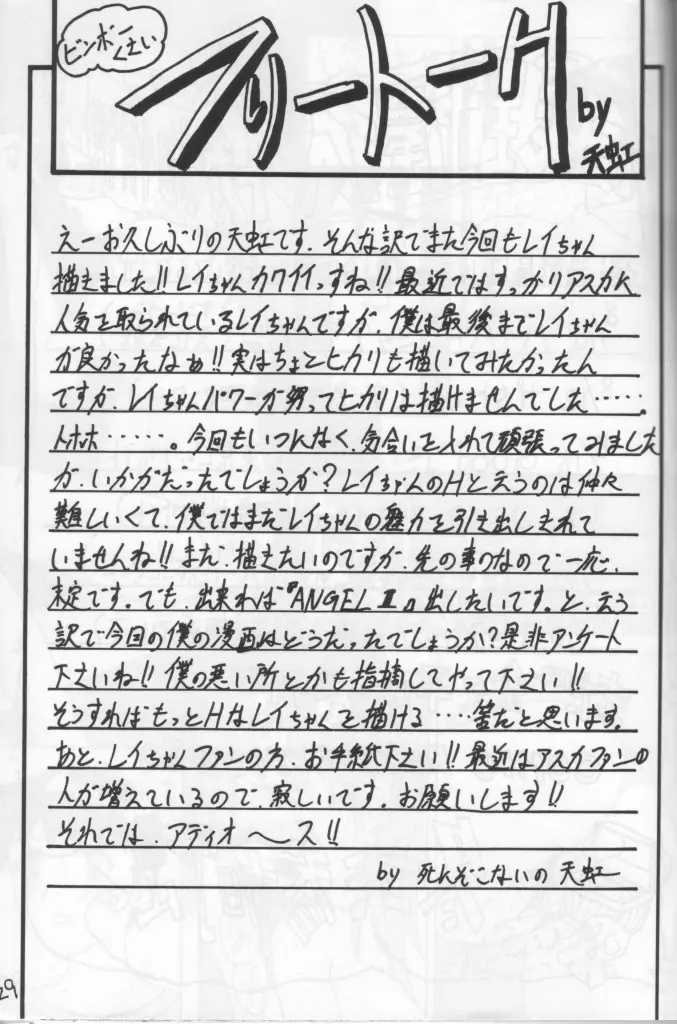 ビンボー
くさい
フリートーH
by
天虹
えーお久しぶりの天虹です。そんな訳でまた今回もレイちゃん
描きました!!レイちゃんカワイイっすね!!最近ではすっかりアスカに
人気を取られているレイちゃんですが、僕は最後までレイちゃん
が良かったなぁ!!実はちょとヒカリも描いてみたかったん
ですが、レイちゃんパワーが勝ってヒカリは描けませんでした……。
トホホ……。今回もいつになく、気合いを入れて頑張ってみました
が、いかがだったでしょうか?レイちゃんのHと云うのは仲々
難しいくて、僕ではまだレイちゃんの魅力を引き出しきれて
いませんね!!まだ、描きたいのですが、先の事なので一応、
未定です。でも、出来れば『ANGEL Ⅲ』出したいです。と、云う
訳で今回の僕の漫画はどうだったでしょうか?是非アンケート
下さいね!!僕の悪い所とかも指摘してやって下さい!!
そうすればもっとHなレイちゃんを描ける‥‥筈だと思います。
あと、レイちゃんファンの方、お手紙下さい!!最近はアスカファンの
人が増えているので、寂しいです。お願いします!!
それでは、アディオ〜ス!!
by 死んぞこないの 天虹
29